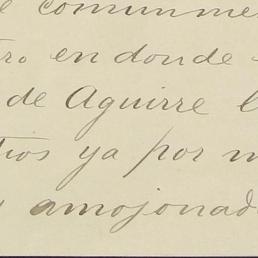 e comunme
tro en donde
de Aguirre l
tios ya por m
amojonad